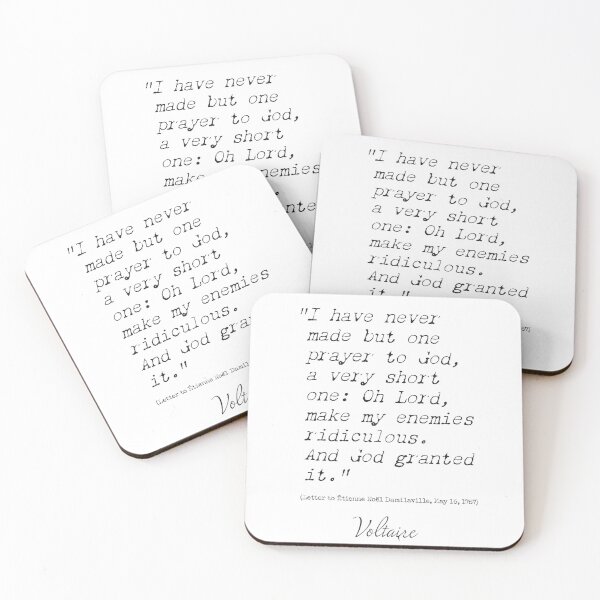 "I have never
made but one
prayer to God,
a very short
one: Oh Lord,
make enemies
"I have never
made but one
prayer to God,
a very short
one: Oh Lord,
make my enemies
ridiculous.
And God granted
it."
"I have never
made but one
prayer to God,
a very short
one: Oh Lord,
make my enemies
ridiculous.
And God
it."
(Letter to Étienne Noël
"I have never
made but one
prayer to God,
a very short
one: Oh Lord,
make my enemies
ridiculous.
And God granted
it."
(Letter to Étienne Noël Damilaville, May 16, 1767)
Voltaire